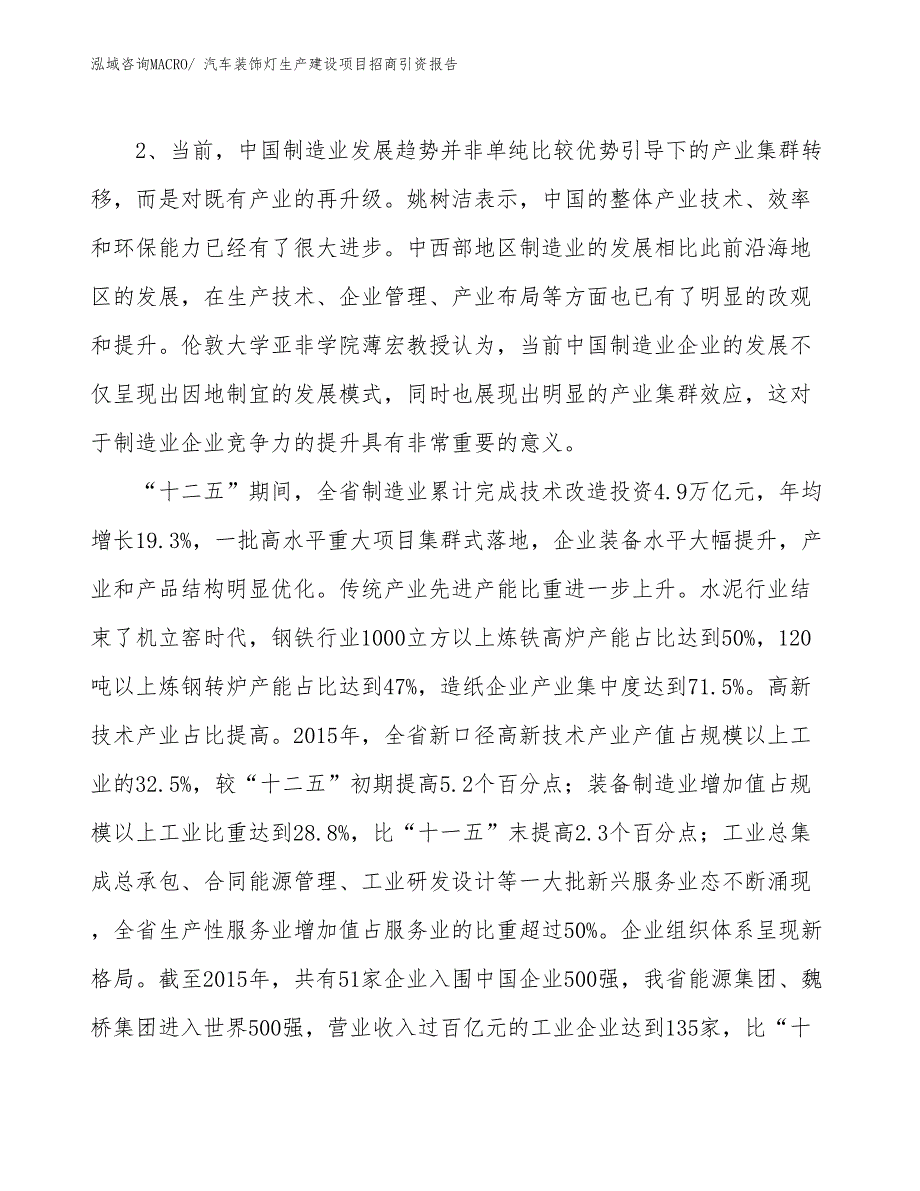 泓域咨询MACRO/ 汽车装饰灯生产建设项目招商引资报告
2、当前，中国制造业发展趋势并非单纯比较优势引导下的产业集群转
移，而是对既有产业的再升级。姚树洁表示，中国的整体产业技术、效率
和环保能力已经有了很大进步。中西部地区制造业的发展相比此前沿海地
区的发展，在生产技术、企业管理、产业布局等方面也已有了明显的改观
和提升。伦敦大学亚非学院薄宏教授认为，当前中国制造业企业的发展不
仅呈现出因地制宜的发展模式，同时也展现出明显的产业集群效应，这对
于制造业企业竞争力的提升具有非常重要的意义。
“十二五”期间，全省制造业累计完成技术改造投资4.9万亿元，年均
增长19.3%，一批高水平重大项目集群式落地，企业装备水平大幅提升，产
业和产品结构明显优化。传统产业先进产能比重进一步上升。水泥行业结
束了机立窑时代，钢铁行业1000立方以上炼铁高炉产能占比达到50%，120
吨以上炼钢转炉产能占比达到47%，造纸企业产业集中度达到71.5%。高新
技术产业占比提高。2015年，全省新口径高新技术产业产值占规模以上工
业的32.5%，较“十二五”初期提高5.2个百分点；装备制造业增加值占规
模以上工业比重达到28.8%，比“十一五”末提高2.3个百分点；工业总集
成总承包、合同能源管理、工业研发设计等一大批新兴服务业态不断涌现
，全省生产性服务业增加值占服务业的比重超过50%。企业组织体系呈现新
格局。截至2015年，共有51家企业入围中国企业500强，我省能源集团、魏
桥集团进入世界500强，营业收入过百亿元的工业企业达到135家，比“十